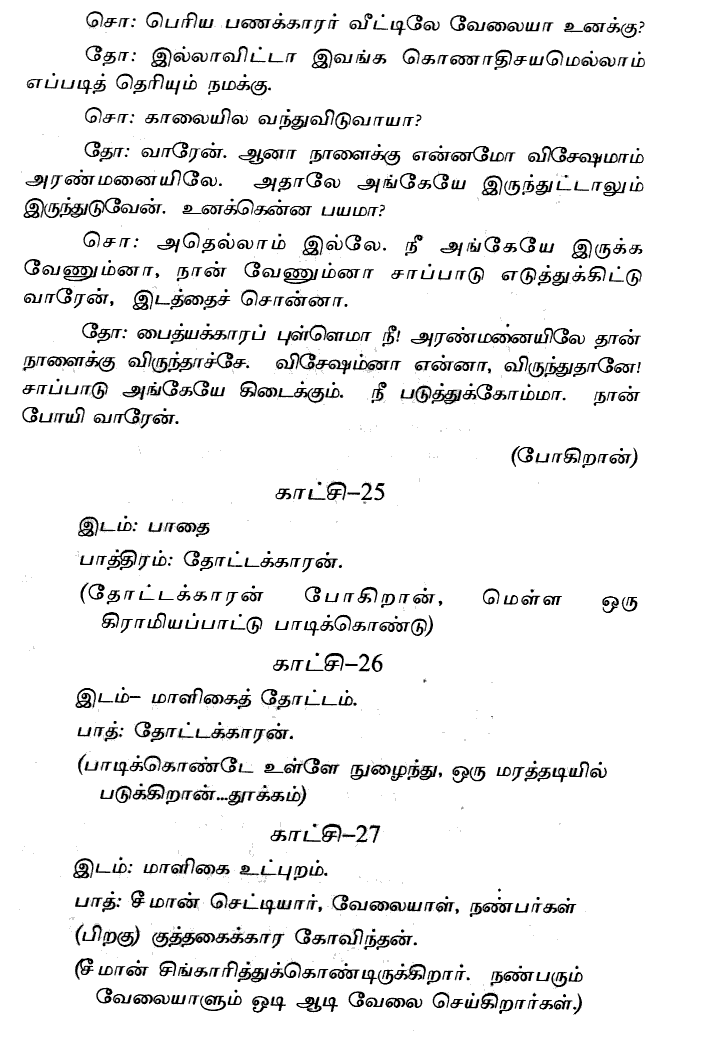 சொ: பெரிய பணக்காரர் வீட்டிலே வேலையா உனக்கு?
தோ: இல்லாவிட்டா இவங்க கொணாதிசயமெல்லாம்
எப்படித் தெரியும் நமக்கு.
சொ: காலையில வந்துவிடுவாயா?
தோ: வாரேன். ஆனா நாளைக்கு என்னமோ விசேஷமாம்
அரண்மனையிலே. அதாலே அங்கேயே இருந்துட்டாலும்
இருந்துடுவேன். உனக்கென்ன பயமா?
சொ: அதெல்லாம் இல்லே. நீ அங்கேயே இருக்க
வேணும்னா, நான் வேணும்னா சாப்பாடு எடுத்துக்கிட்டு
வாரேன், இடத்தைச் சொன்னா.
தோ: பைத்யக்காரப் புள்ளெமா நீ! அரண்மனையிலே தான்
நாளைக்கு விருந்தாச்சே. விசேஷம்னா என்னா, விருந்துதானே!
சாப்பாடு அங்கேயே கிடைக்கும். நீ படுத்துக்கோம்மா. நான்
போயி வாரேன்.
(போகிறான்)
காட்சி–25
இடம்: பாதை
பாத்திரம்: தோட்டக்காரன்.
(தோட்டக்காரன் போகிறான், மெள்ள ஒரு
கிராமியப்பாட்டு பாடிக்கொண்டு)
காட்சி–26
இடம்– மாளிகைத் தோட்டம்.
பாத்: தோட்டக்காரன்.
(பாடிக்கொண்டே உள்ளே நுழைந்து, ஒரு மரத்தடியில்
படுக்கிறான்...தூக்கம்)
காட்சி–27
இடம்: மாளிகை உட்புறம்.
பாத்: சீமான் செட்டியார், வேலையாள், நண்பர்கள்
(பிறகு) குத்தகைக்கார கோவிந்தன்.
(சீமான் சிங்காரித்துக்கொண்டிருக்கிறார். நண்பரும்
வேலையாளும் ஓடி ஆடி வேலை செய்கிறார்கள்.)